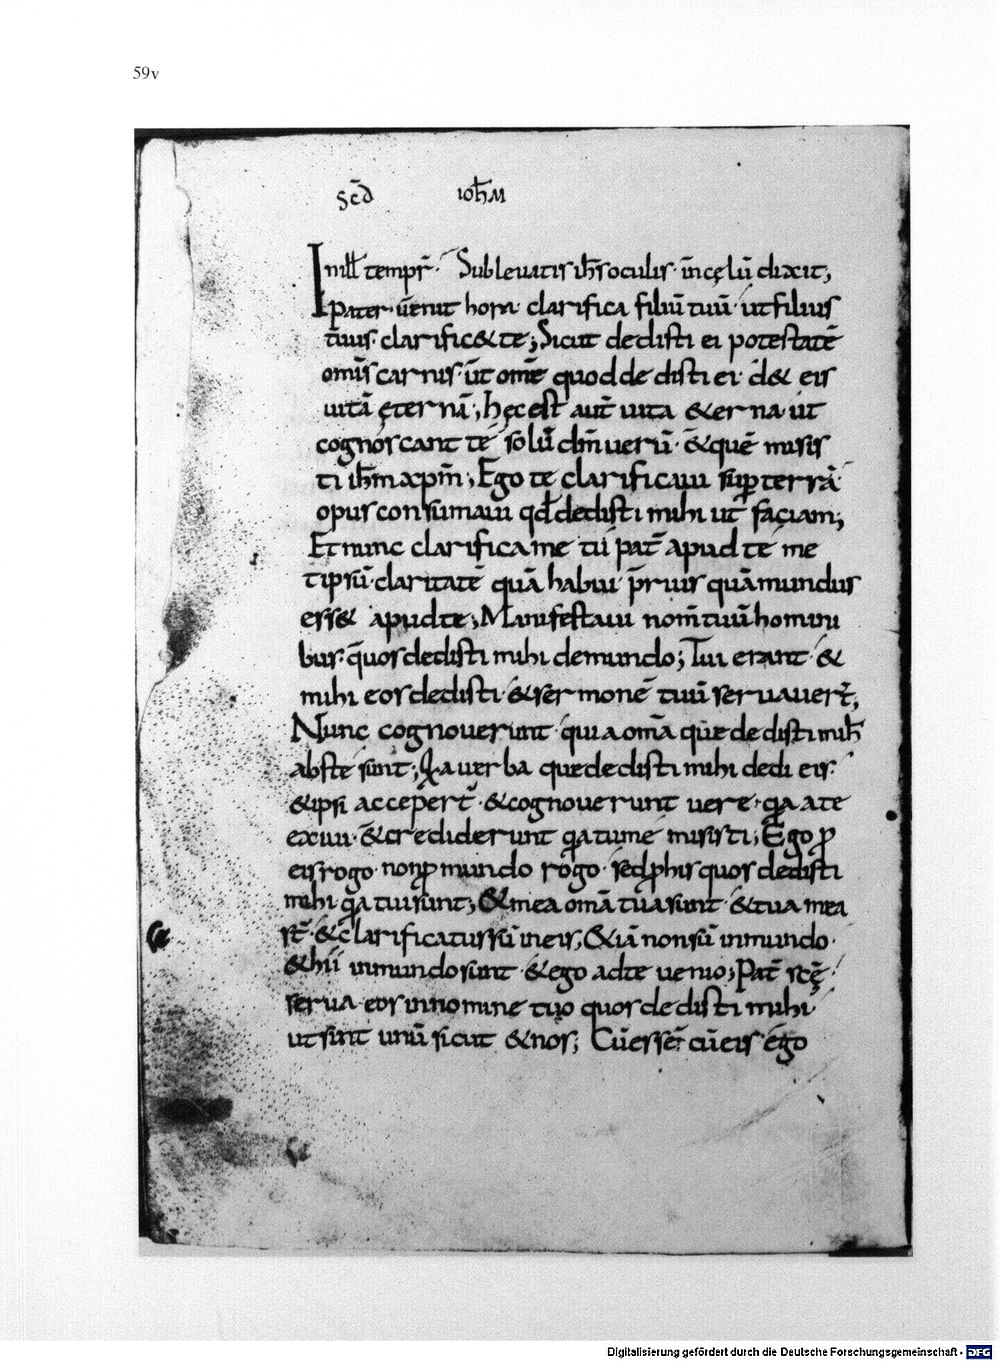 59v
Scd̄ ioh̄m
In ill̄ temp̄r. Subleuatis ih̄s oculis in cęlū dixit,
Pater uenit hora clarifica filiū tuū ut filius
tuus clarific& te; Sicut dedisti ei potestatē
om̄is carnis ut om̄e quod dedisti ei d& eis
uitā ęternā; hęc est aut̄ uita &erna ut
cognoscant te solū dm̄ uerū &quē misis
ti ih̄m xp̄m; Ego te clarificaui sup̄ terrā
opus consumaui qd̄ dedisti mihi ut faciam;
Et nunc clarifica me tu pat̄ apud te me
tipsū claritatē quā habui p̄rius quā mundus
ess& apud te; Manifestaui nom̄ tuū homini
bus quos dedisti mihi de mundo; Tui erant &
mihi eos dedisti & sermonē tuū seruauer̄t,
Nunc cognouerunt quia om̄a que dedisti mih̄
abs te sunt; Q̄a uerba que dedisti mihi dedi eis
&ipsi acceper̄t &cognouerunt uere q̄a a te
exiui &crediderunt q̄a tu me misisti; Ego p̱
eis rogo non p̱ mundo rogo sed p̱ his quos dedisti
mihi q̄a tui sunt; &mea om̄a tua sunt &tua mea
st̄ &clarificatus sū in eis, &iā non sū in mundo
&hii in mundo sunt &ego ad te uenio; Pat̄ sc̄ę
serua eos in nomine tuo quos dedisti mihi
ut sint unū sicut &nos; Cū essē cū eis ego
Digitalisierung gefördert durch die Deutsche Forschungsgemeinschaft - DFG